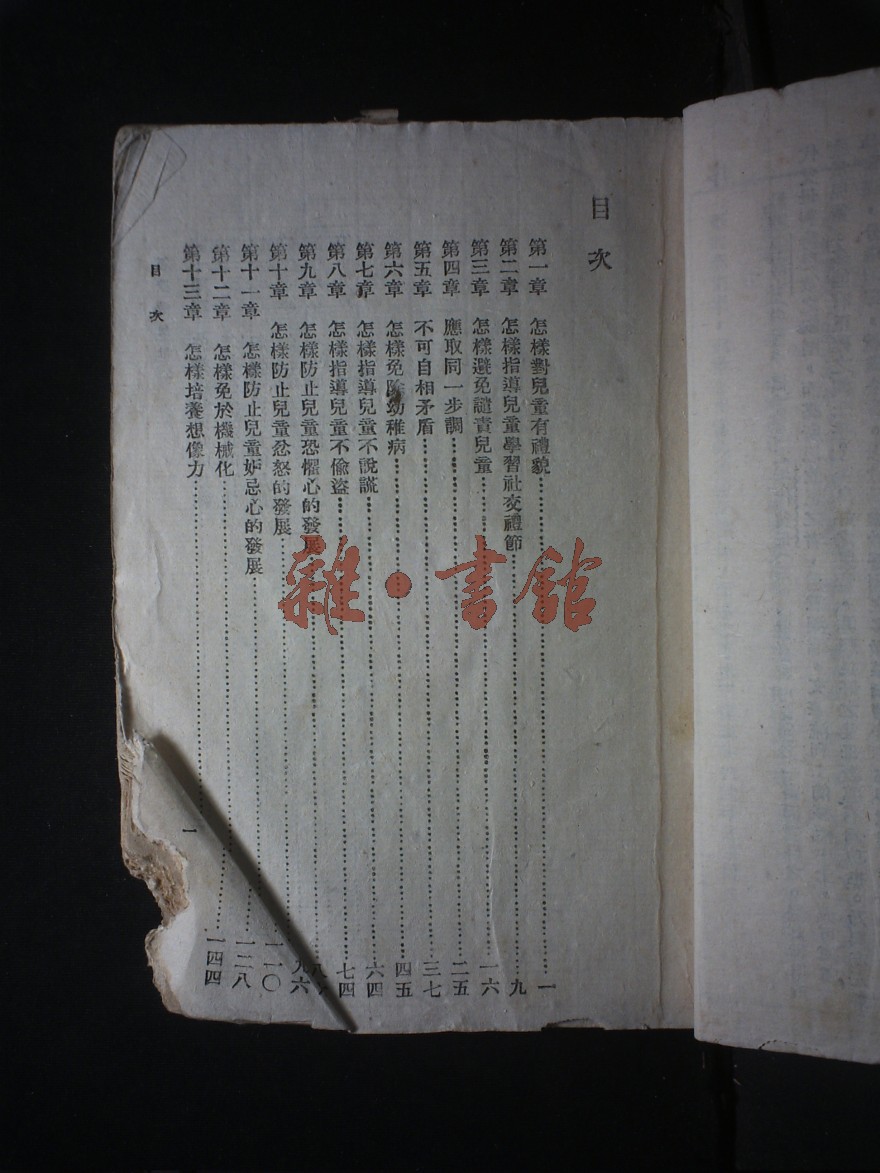 目次
第一章 怎樣對兒童有禮貌……一
第二章 怎樣指導兒童學習社交禮節……九
第三章 怎樣避免譴責兒童……一六
第四章 應取同一步調……二五
第五章 不可自相矛盾……三七
第六章 怎樣免除幼稚病……四五
第七章 怎樣指導兒童不說謊……六四
第八章 怎樣指導兒童不偷盜……七四
第九章 怎樣防止兒童恐懼心的發展……
第十章 怎樣防止兒童忿怒的發展……九六
第十一章 怎樣防止兒童妒忌心的發展……一一〇
第十二章 怎樣免於機械化……一二八
第十三章 怎樣培養想像力……一四四
目次 一
雜·書館